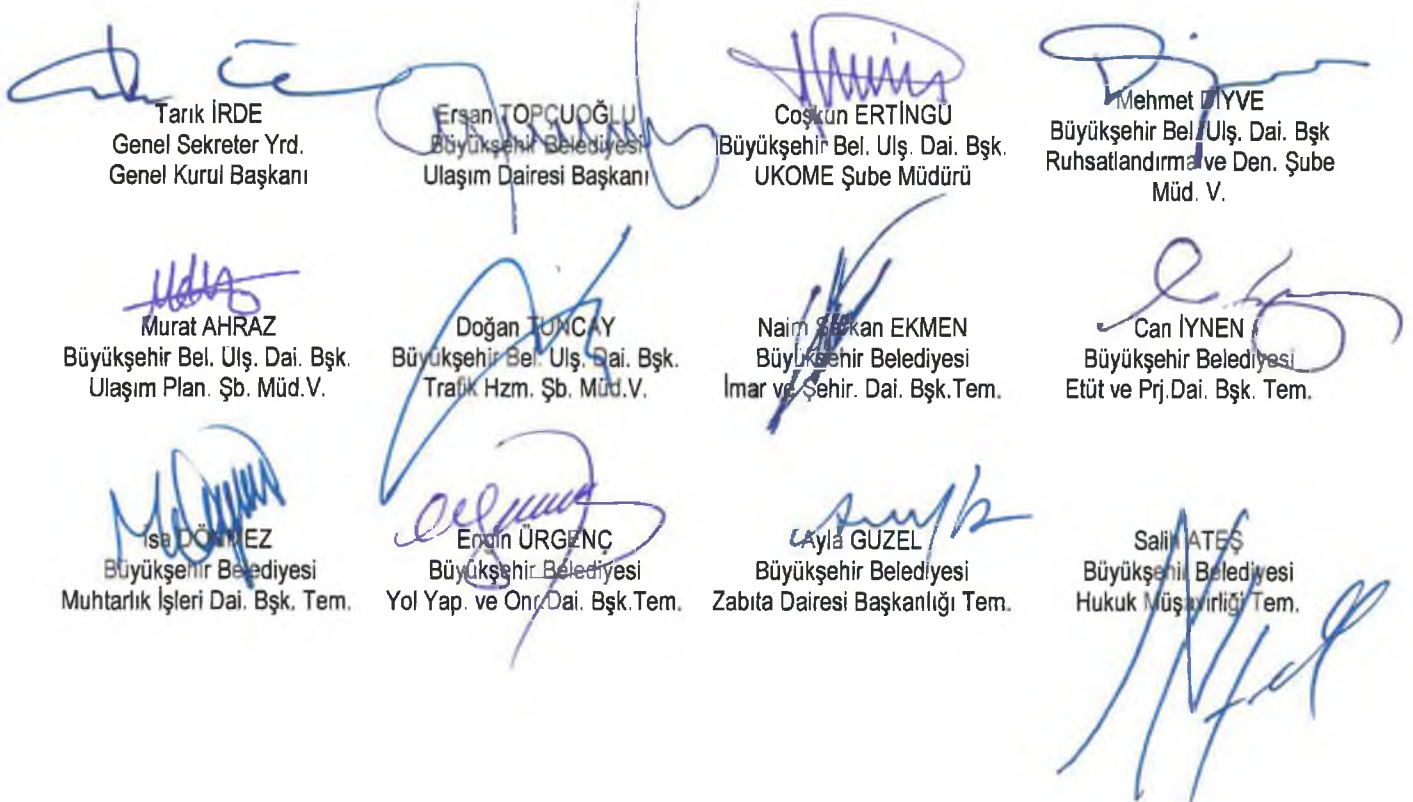 Tarık İRDE
Genel Sekreter Yrd.
Genel Kurul Başkanı
Ersan TOPÇUOĞLU
Büyükşehir Belediyesi
Ulaşım Dairesi Başkanı
Coşkun ERTİNGÜ
Büyükşehir Bel. Ulş. Dai. Bşk.
UKOME Şube Müdürü
Mehmet DİYVE
Büyükşehir Bel. Ulş. Dai. Bşk
Ruhsatlandırma ve Den. Şube
Müd. V.
Murat AHRAZ
Büyükşehir Bel. Ulş. Dai. Bşk.
Ulaşım Plan. Şb. Müd.V.
Doğan TUNCAY
Büyükşehir Bel. Ulş. Dai. Bşk.
Trafik Hzm. Şb. Müd.V.
Naim Serkan EKMEN
Büyükşehir Belediyesi
İmar ve Şehir. Dai. Bşk.Tem.
Can İYNEN
Büyükşehir Belediyesi
Etüt ve Prj.Dai. Bşk. Tem.
İsa DÖNMEZ
Büyükşehir Belediyesi
Muhtarlık İşleri Dai. Bşk. Tem.
Engin ÜRGENÇ
Büyükşehir Belediyesi
Yol Yap. ve Onr.Dai. Bşk.Tem.
Ayla GÜZEL
Büyükşehir Belediyesi
Zabıta Dairesi Başkanlığı Tem.
Salih ATEŞ
Büyükşehir Belediyesi
Hukuk Müşavirliği Tem.